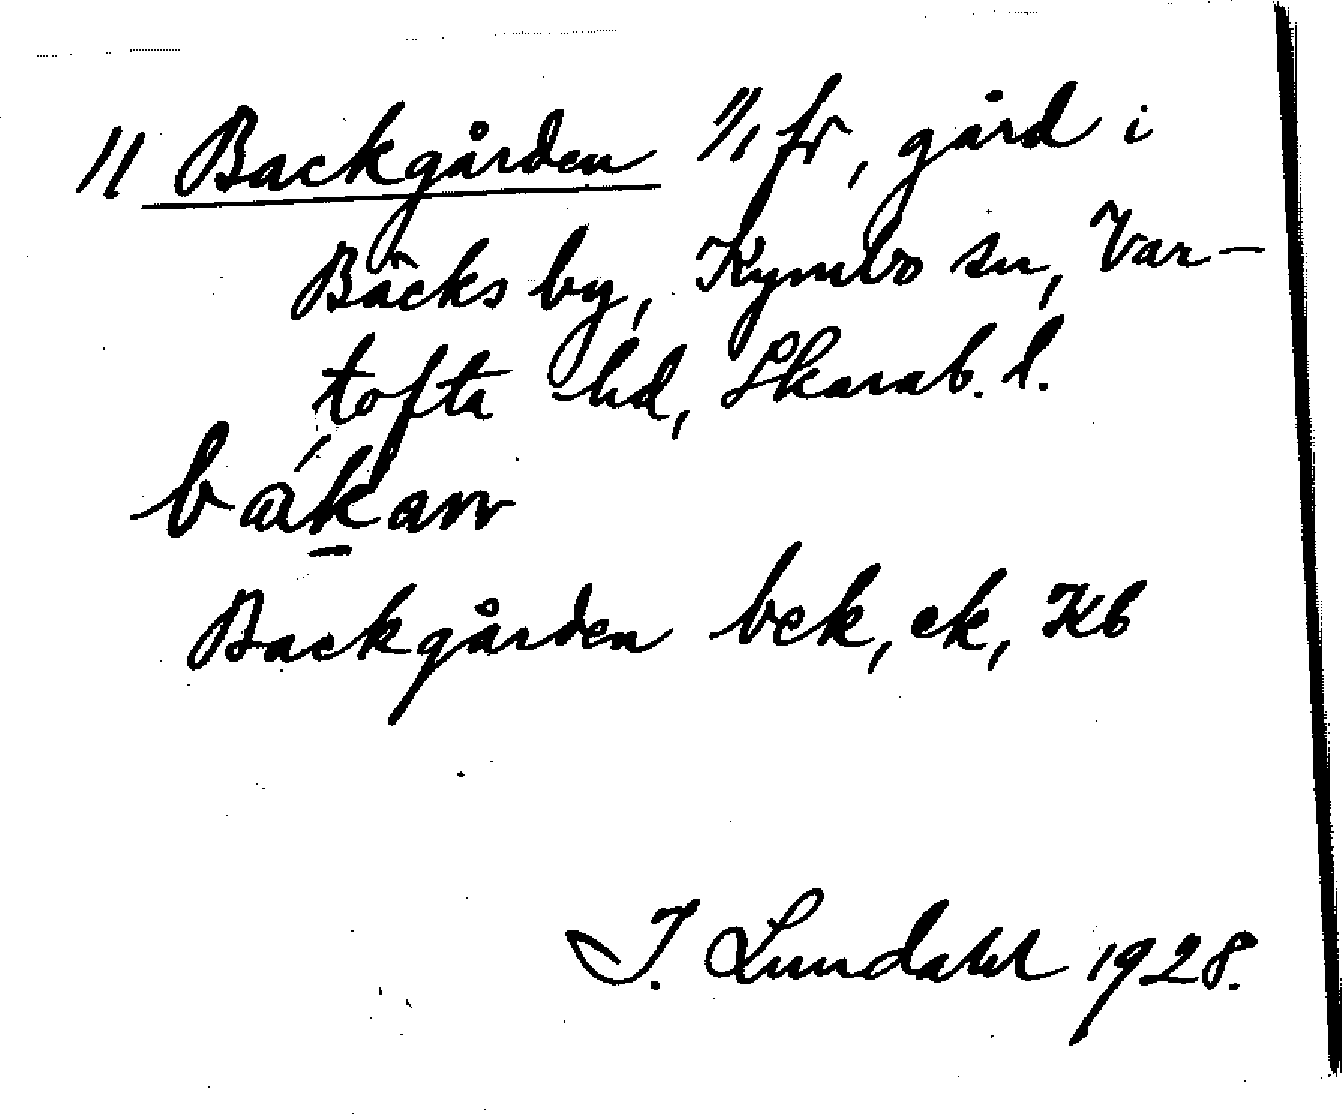 11 Backgården 1/1 fr, gård i
Bäcks by, Kymbo sn, Var-
tofta hd, Skarab. l.
Backgården bek, ek, Kb
I. Lundahl 1928.